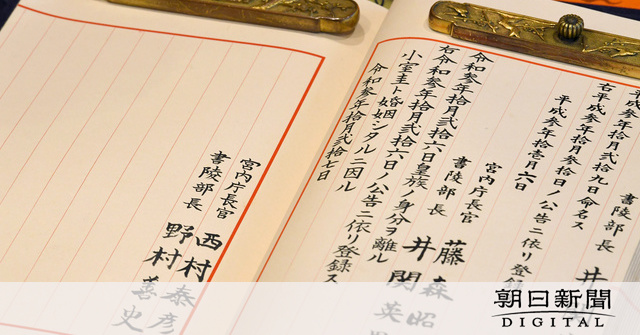 参年拾月弐拾九日命名ス
右平成参年拾月参拾日ノ公告ニ依リ登録
平成参年拾壱月六日
書陵部長 井
宮内庁長官 藤森昭
書陵部長 井関英
令和参年拾月弐拾六日
小室圭ト婚姻シタルニ因ル
皇族ノ身分ヲ離ル
右令和参年拾月弐拾六日ノ公告ニ依リ登録ス
令和参年拾月弐拾七日
宮内庁長官 西村泰彦
書陵部長 野村善史
朝日新聞
DIGITAL